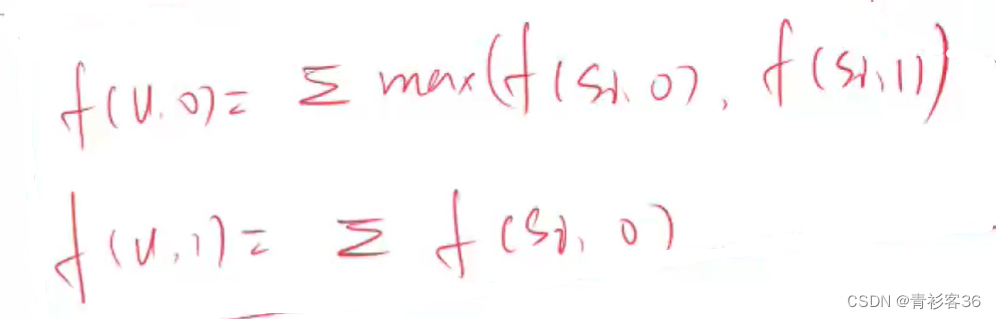 f(u,0)= Σ max(f(si,0), f(si,1))
f(u,1)= Σ f(si,0)
CSDN @青衫客36